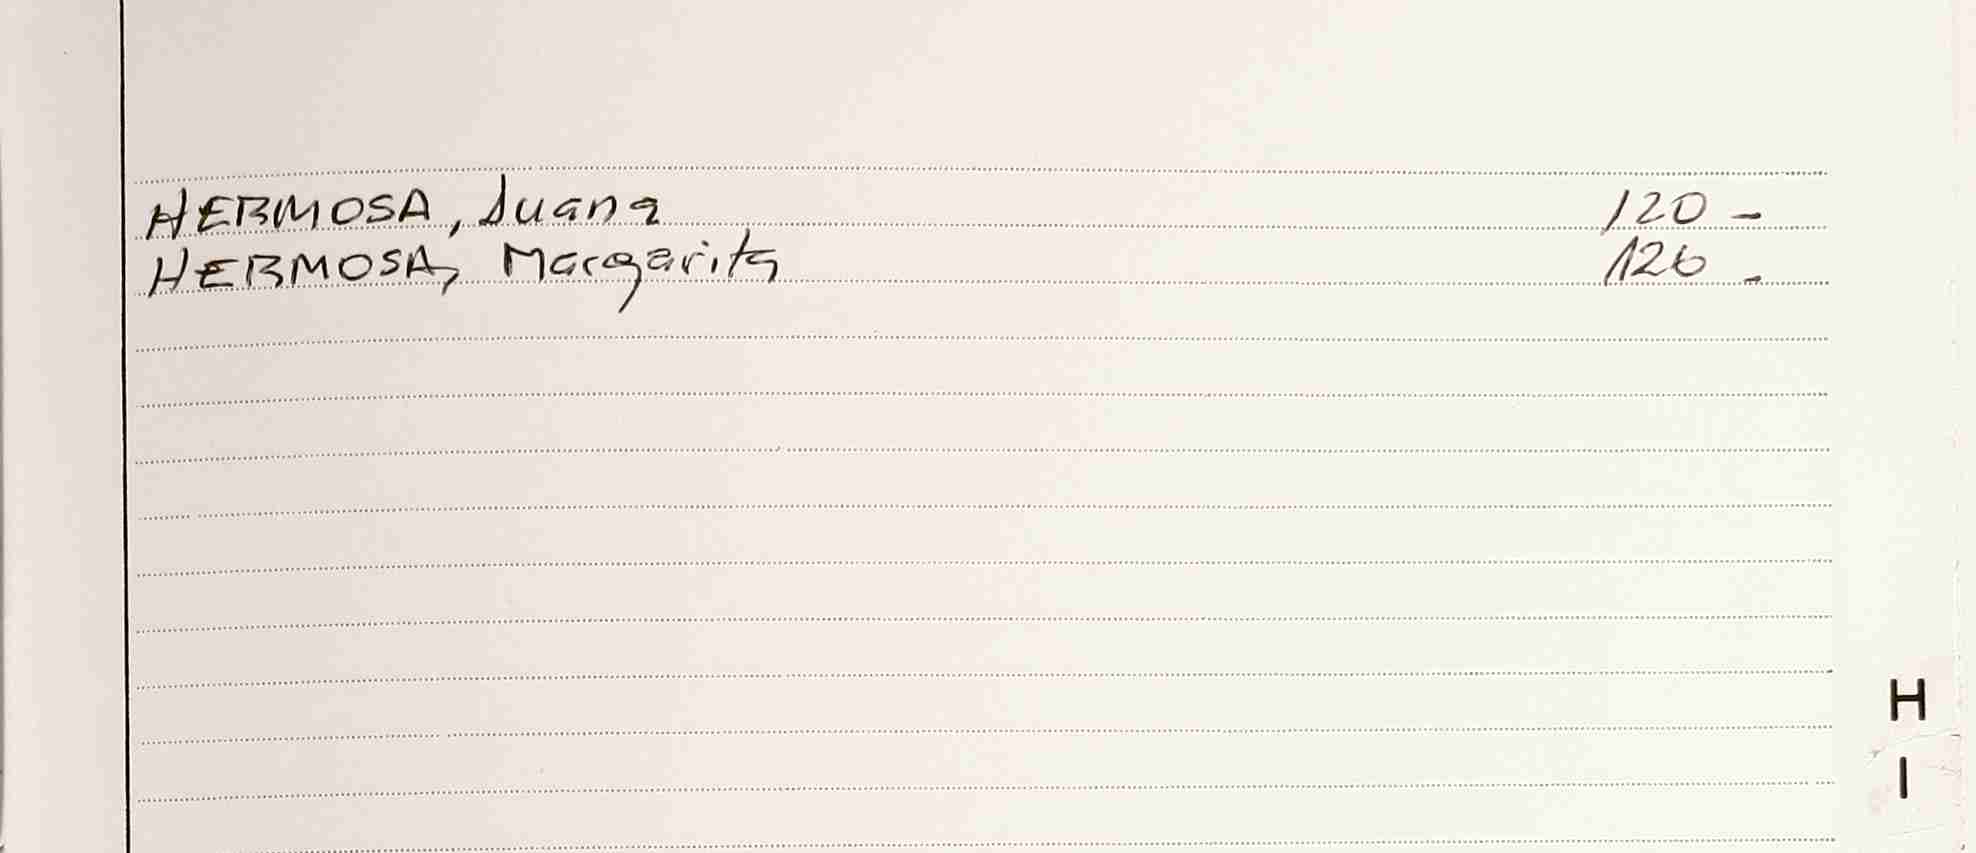 HERMOSA, Juana 120 -
HERMOSA, Margarita 126 -
H
I